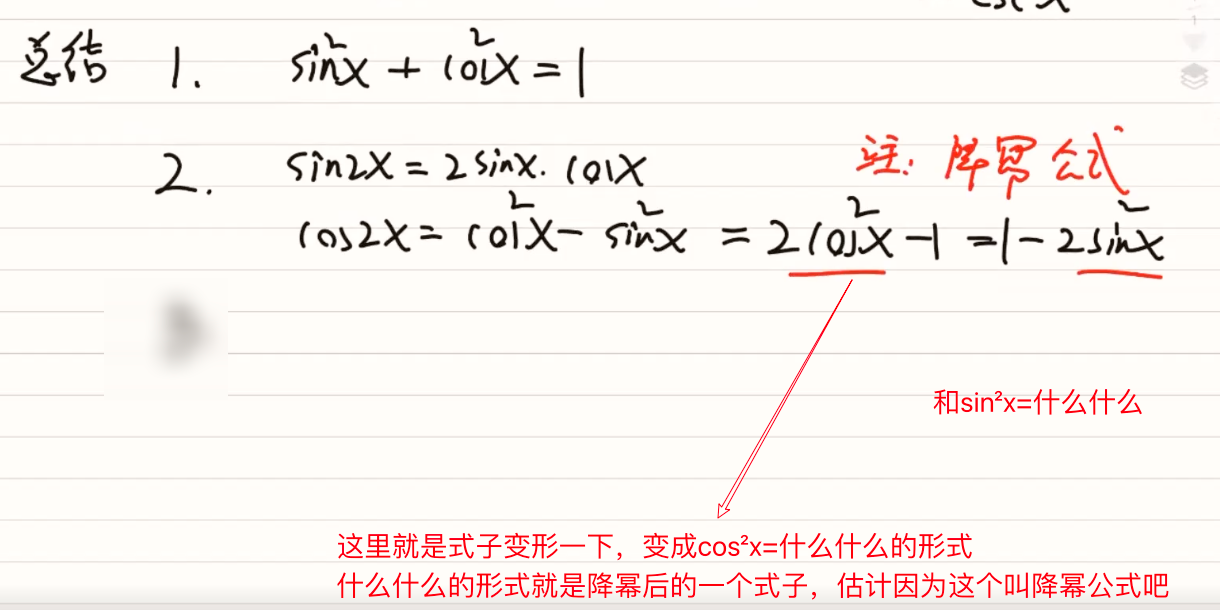 总结 1. sin²x + cos²x = 1
2. sin2x = 2sinx·cosx 注:降幂公式
cos2x = cos²x - sin²x = 2cos²x - 1 = 1 - 2sin²x
和sin²x=什么什么
这里就是式子变形一下，变成cos²x=什么什么的形式
什么什么的形式就是降幂后的一个式子，估计因为这个叫降幂公式吧